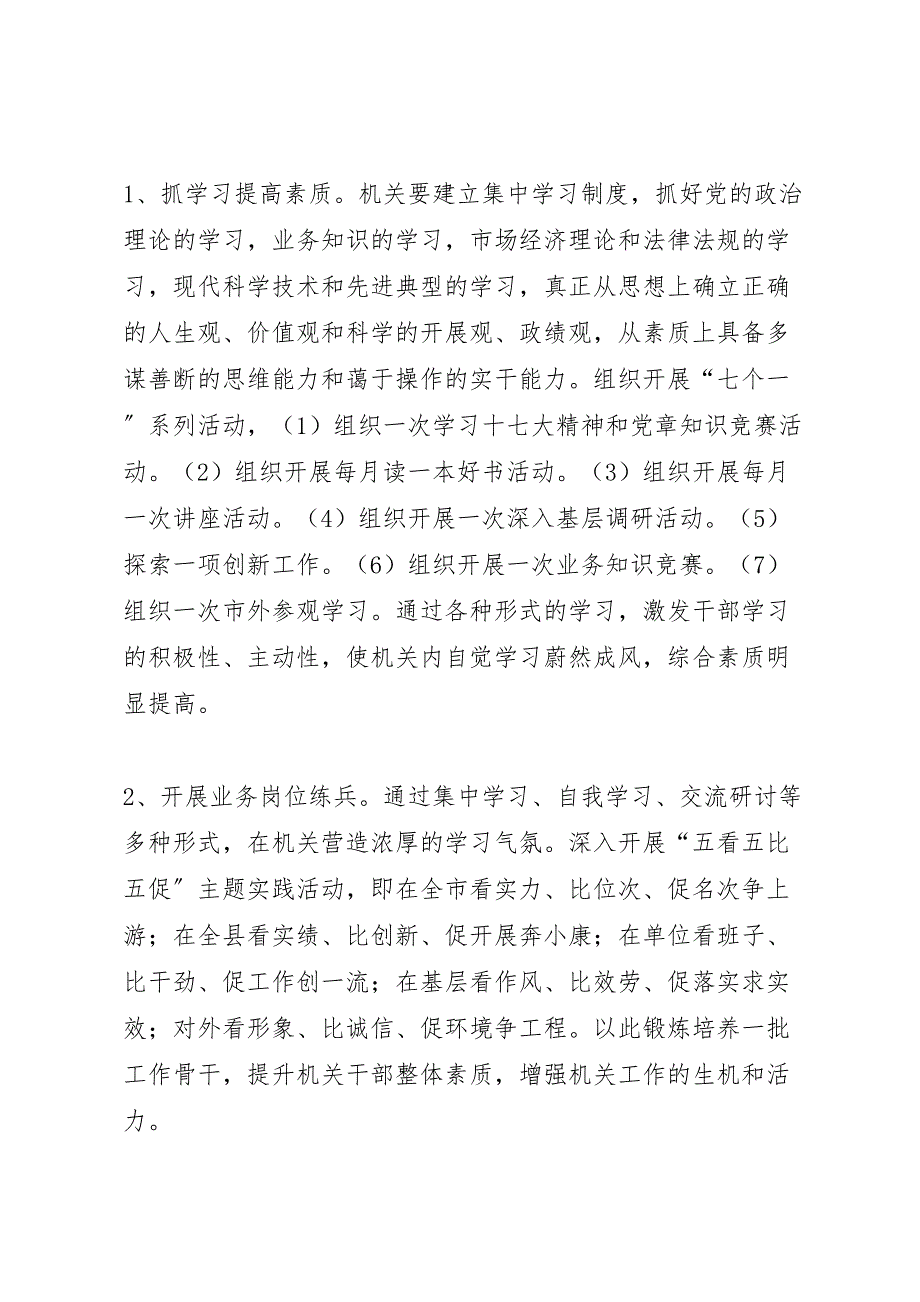 1、抓学习提高素质。机关要建立集中学习制度，抓好党的政治
理论的学习，业务知识的学习，市场经济理论和法律法规的学
习，现代科学技术和先进典型的学习，真正从思想上确立正确
的人生观、价值观和科学的开展观、政绩观，从素质上具备多
谋善断的思维能力和蔼于操作的实干能力。组织开展“七个一
〞系列活动，（1）组织一次学习十七大精神和党章知识竞赛活
动。（2）组织开展每月读一本好书活动。（3）组织开展每月
一次讲座活动。（4）组织开展一次深入基层调研活动。（5）
探索一项创新工作。（6）组织开展一次业务知识竞赛。（7）
组织一次市外参观学习。通过各种形式的学习，激发干部学习
的积极性、主动性，使机关内自觉学习蔚然成风，综合素质明
显提高。
2、开展业务岗位练兵。通过集中学习、自我学习、交流研讨等
多种形式，在机关营造浓厚的学习气氛。深入开展“五看五比
五促〞主题实践活动，即在全市看实力、比位次、促名次争上
游；在全县看实绩、比创新、促开展奔小康；在单位看班子、
比干劲、促工作创一流；在基层看作风、比效劳、促落实求实
效；对外看形象、比诚信、促环境争工程。以此锻炼培养一批
工作骨干，提升机关干部整体素质，增强机关工作的生机和活
力。